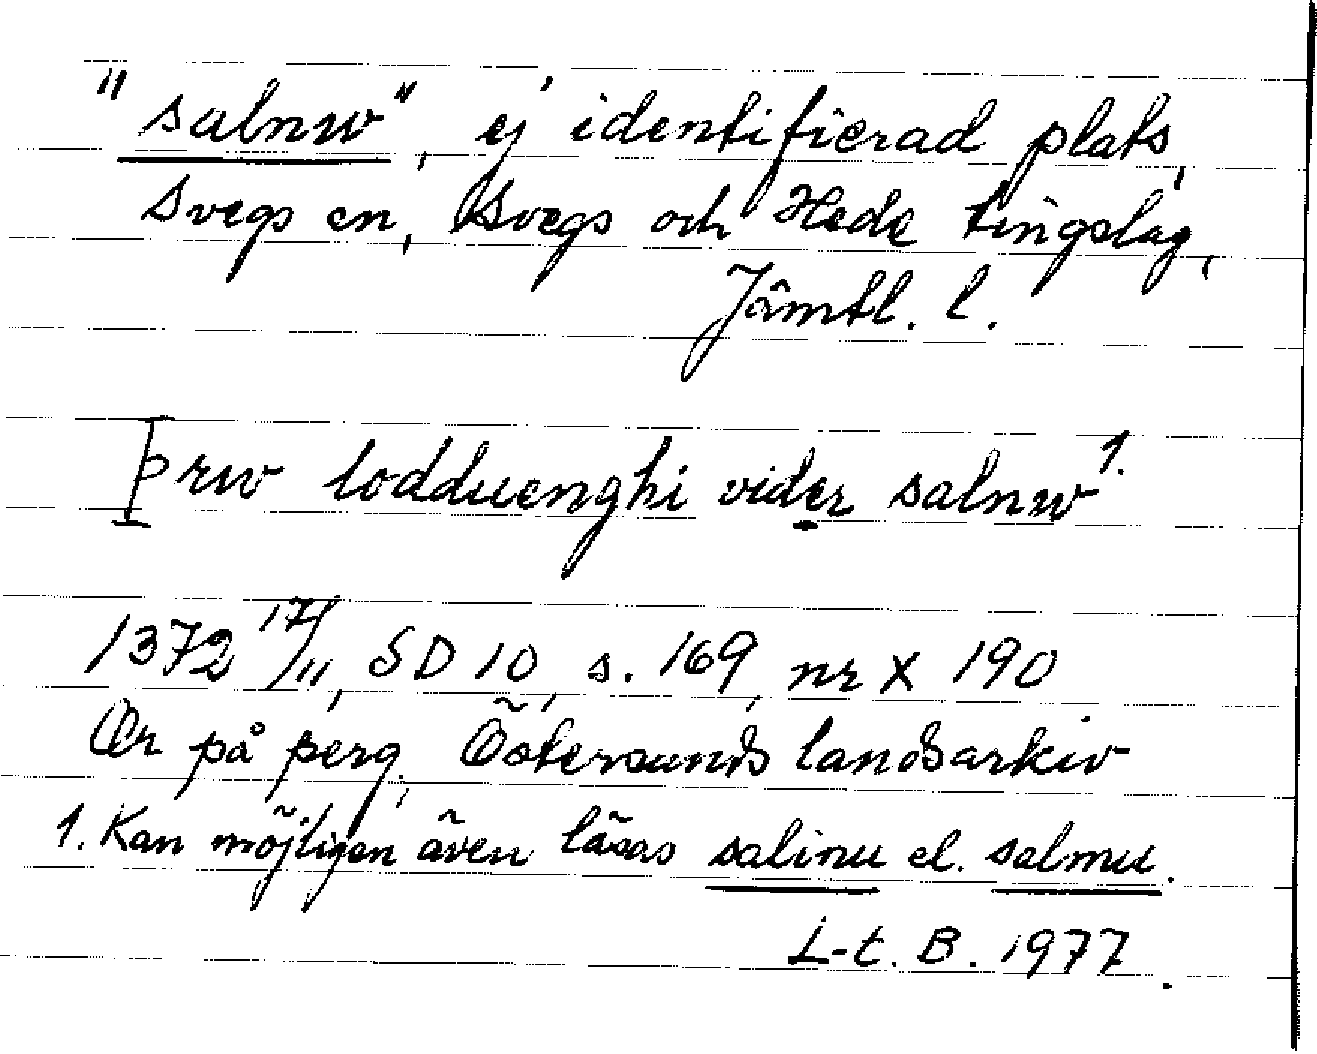 "salnw", ej identifierad plats,
Svegs sn, Svegs och Hede tingslag,
Jämtl. l.
þrw lodduenghi vider salnw 1.
1372 17/11, SD 10, s. 169, nr X 190
Or på perg., Östersunds landsarkiv
1. Kan möjligen även läsas salinu el. salmu.
L-t. B. 1977.